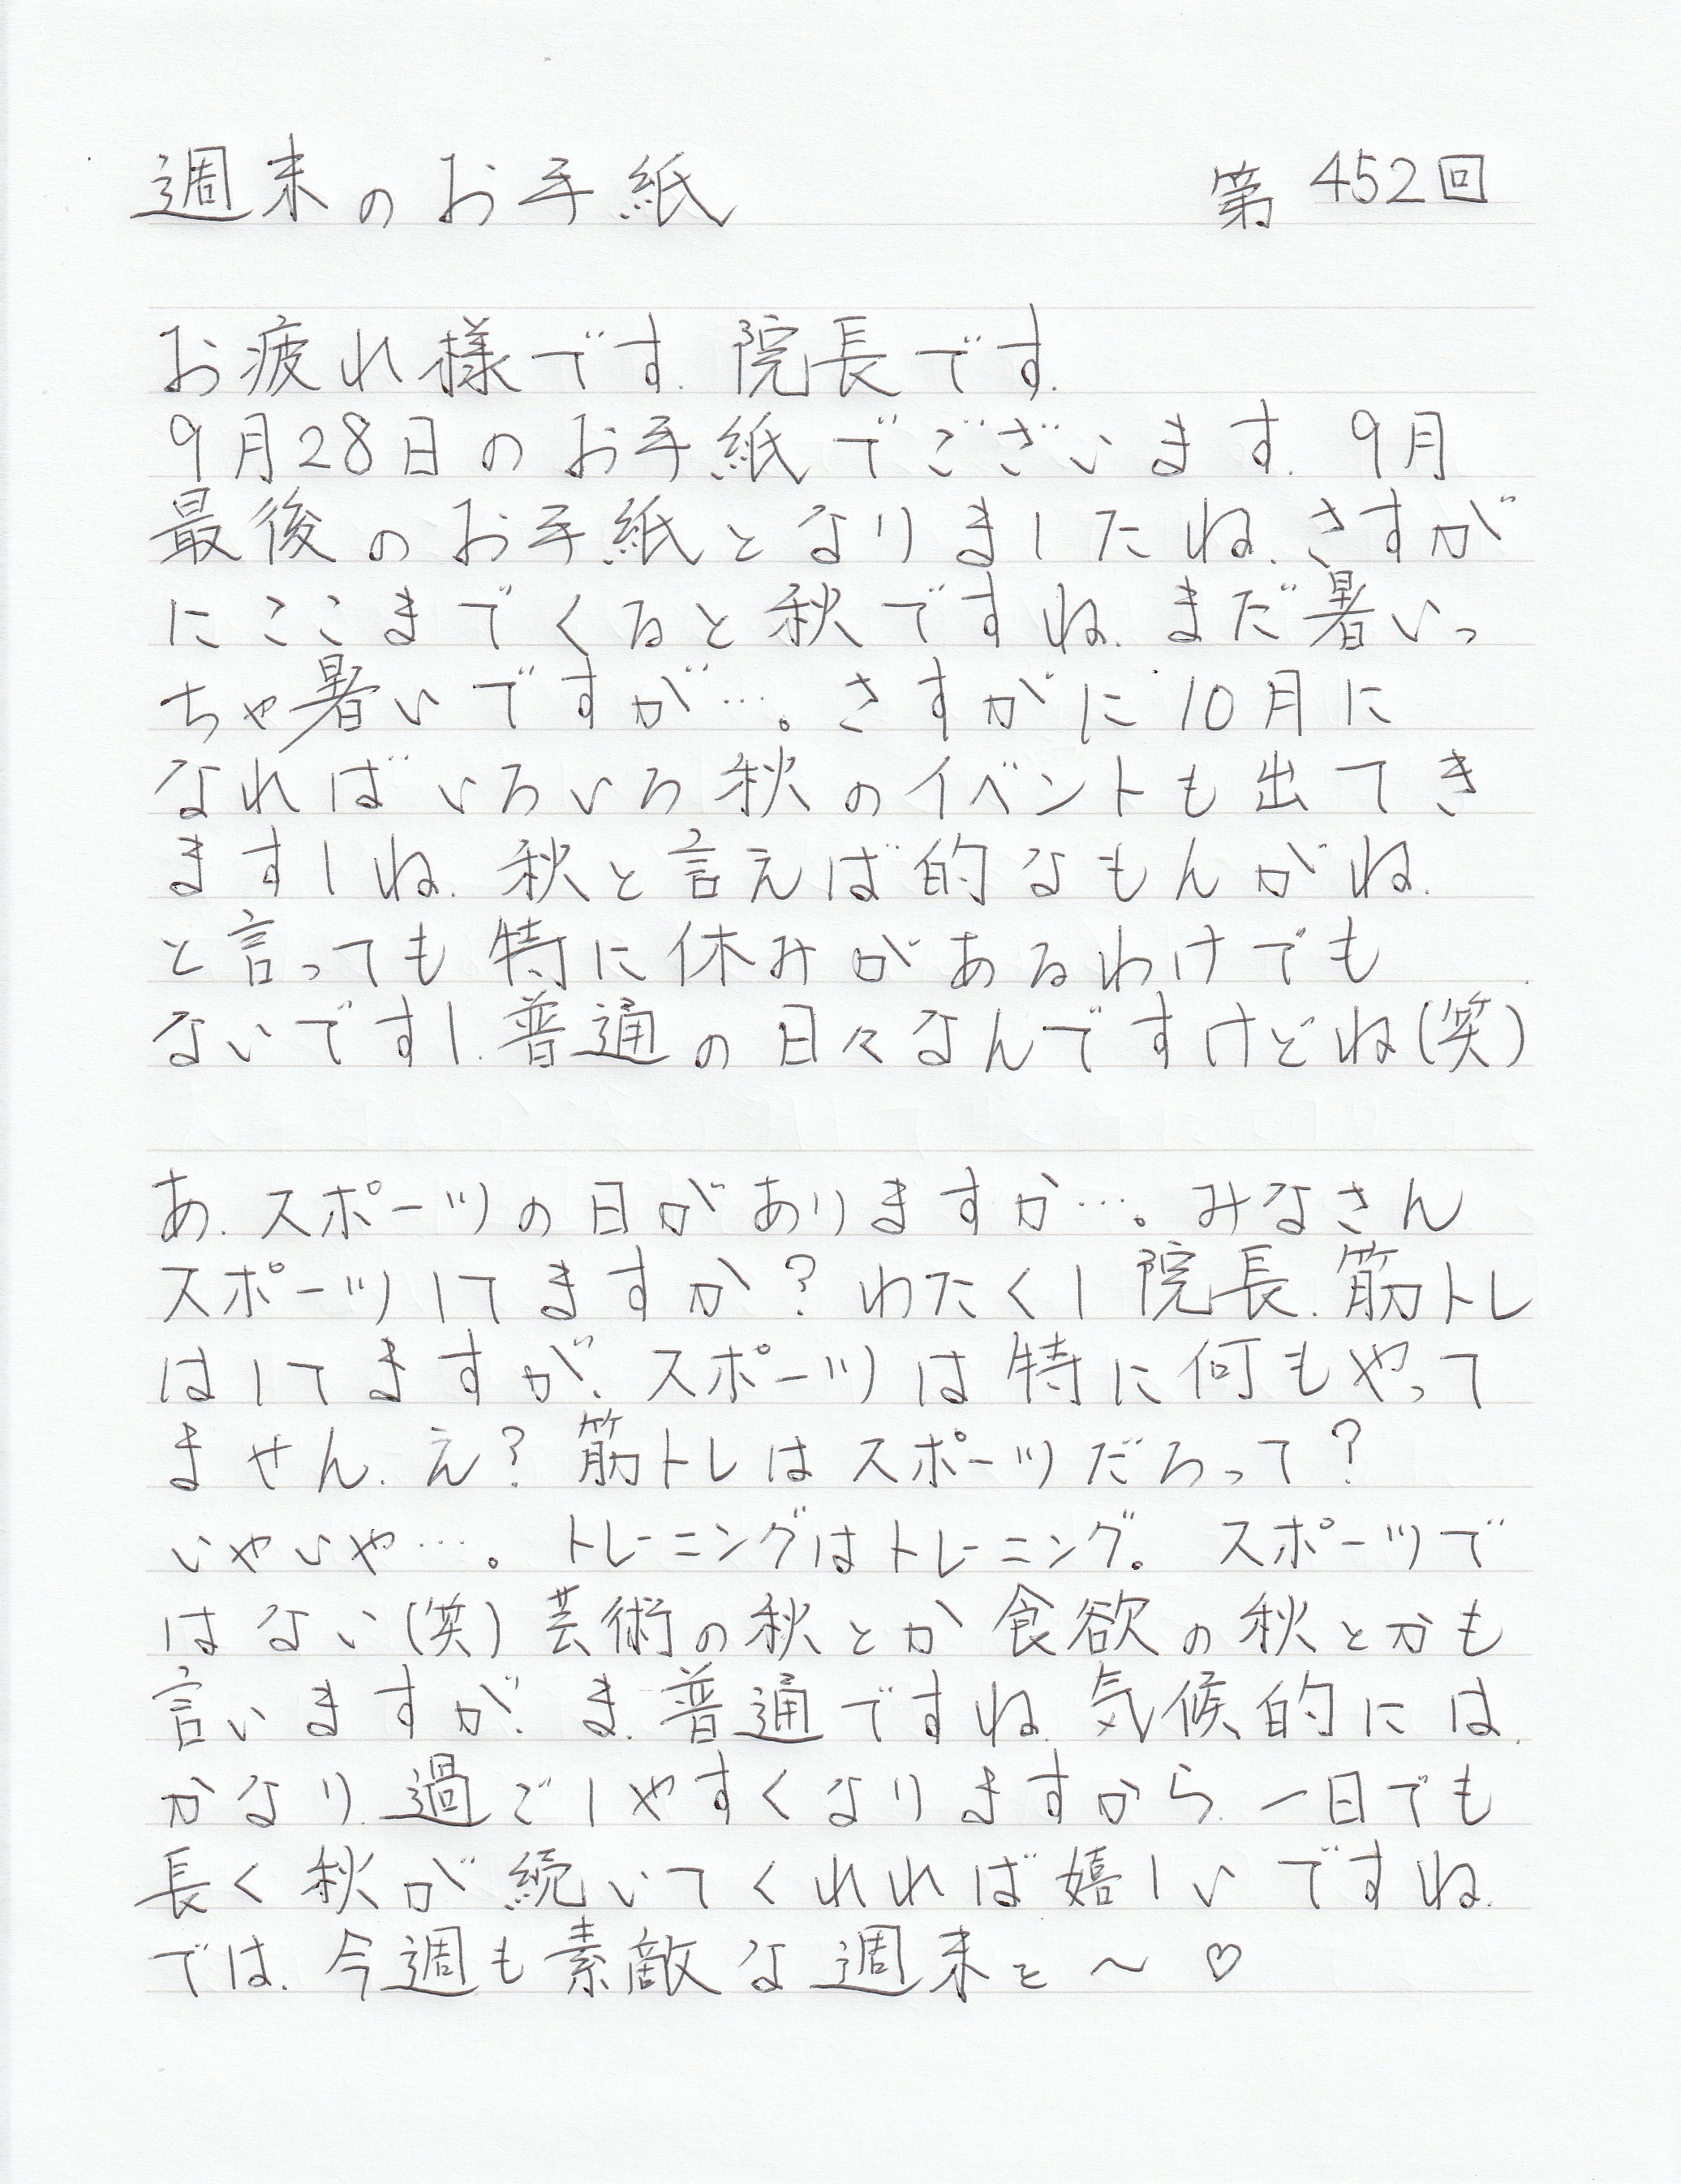 週末のお手紙 第452回
お疲れ様です。院長です。
9月28日のお手紙でございます。9月
最後のお手紙となりましたね。さすが
にここまでくると秋ですね。まだ暑いっ
ちゃ暑いですが…。さすがに10月に
なればいろいろ秋のイベントも出てき
ますしね。秋と言えば的なもんがね。
と言っても特に休みがあるわけでも
ないですし、普通の日々なんですけどね(笑)
あ、スポーツの日がありますか…。みなさん
スポーツしてますか?わたくし院長、筋トレ
はしてますが、スポーツは特に何もやって
ません。え?筋トレはスポーツだろって?
いやいや…。トレーニングはトレーニング。スポーツで
はない(笑)芸術の秋とか食欲の秋とかも
言いますが、ま、普通ですね。気候的には、
かなり、過ごしやすくなりますから、一日でも
長く秋が続いてくれれば嬉しいですね。
では、今週も素敵な週末を〜♡